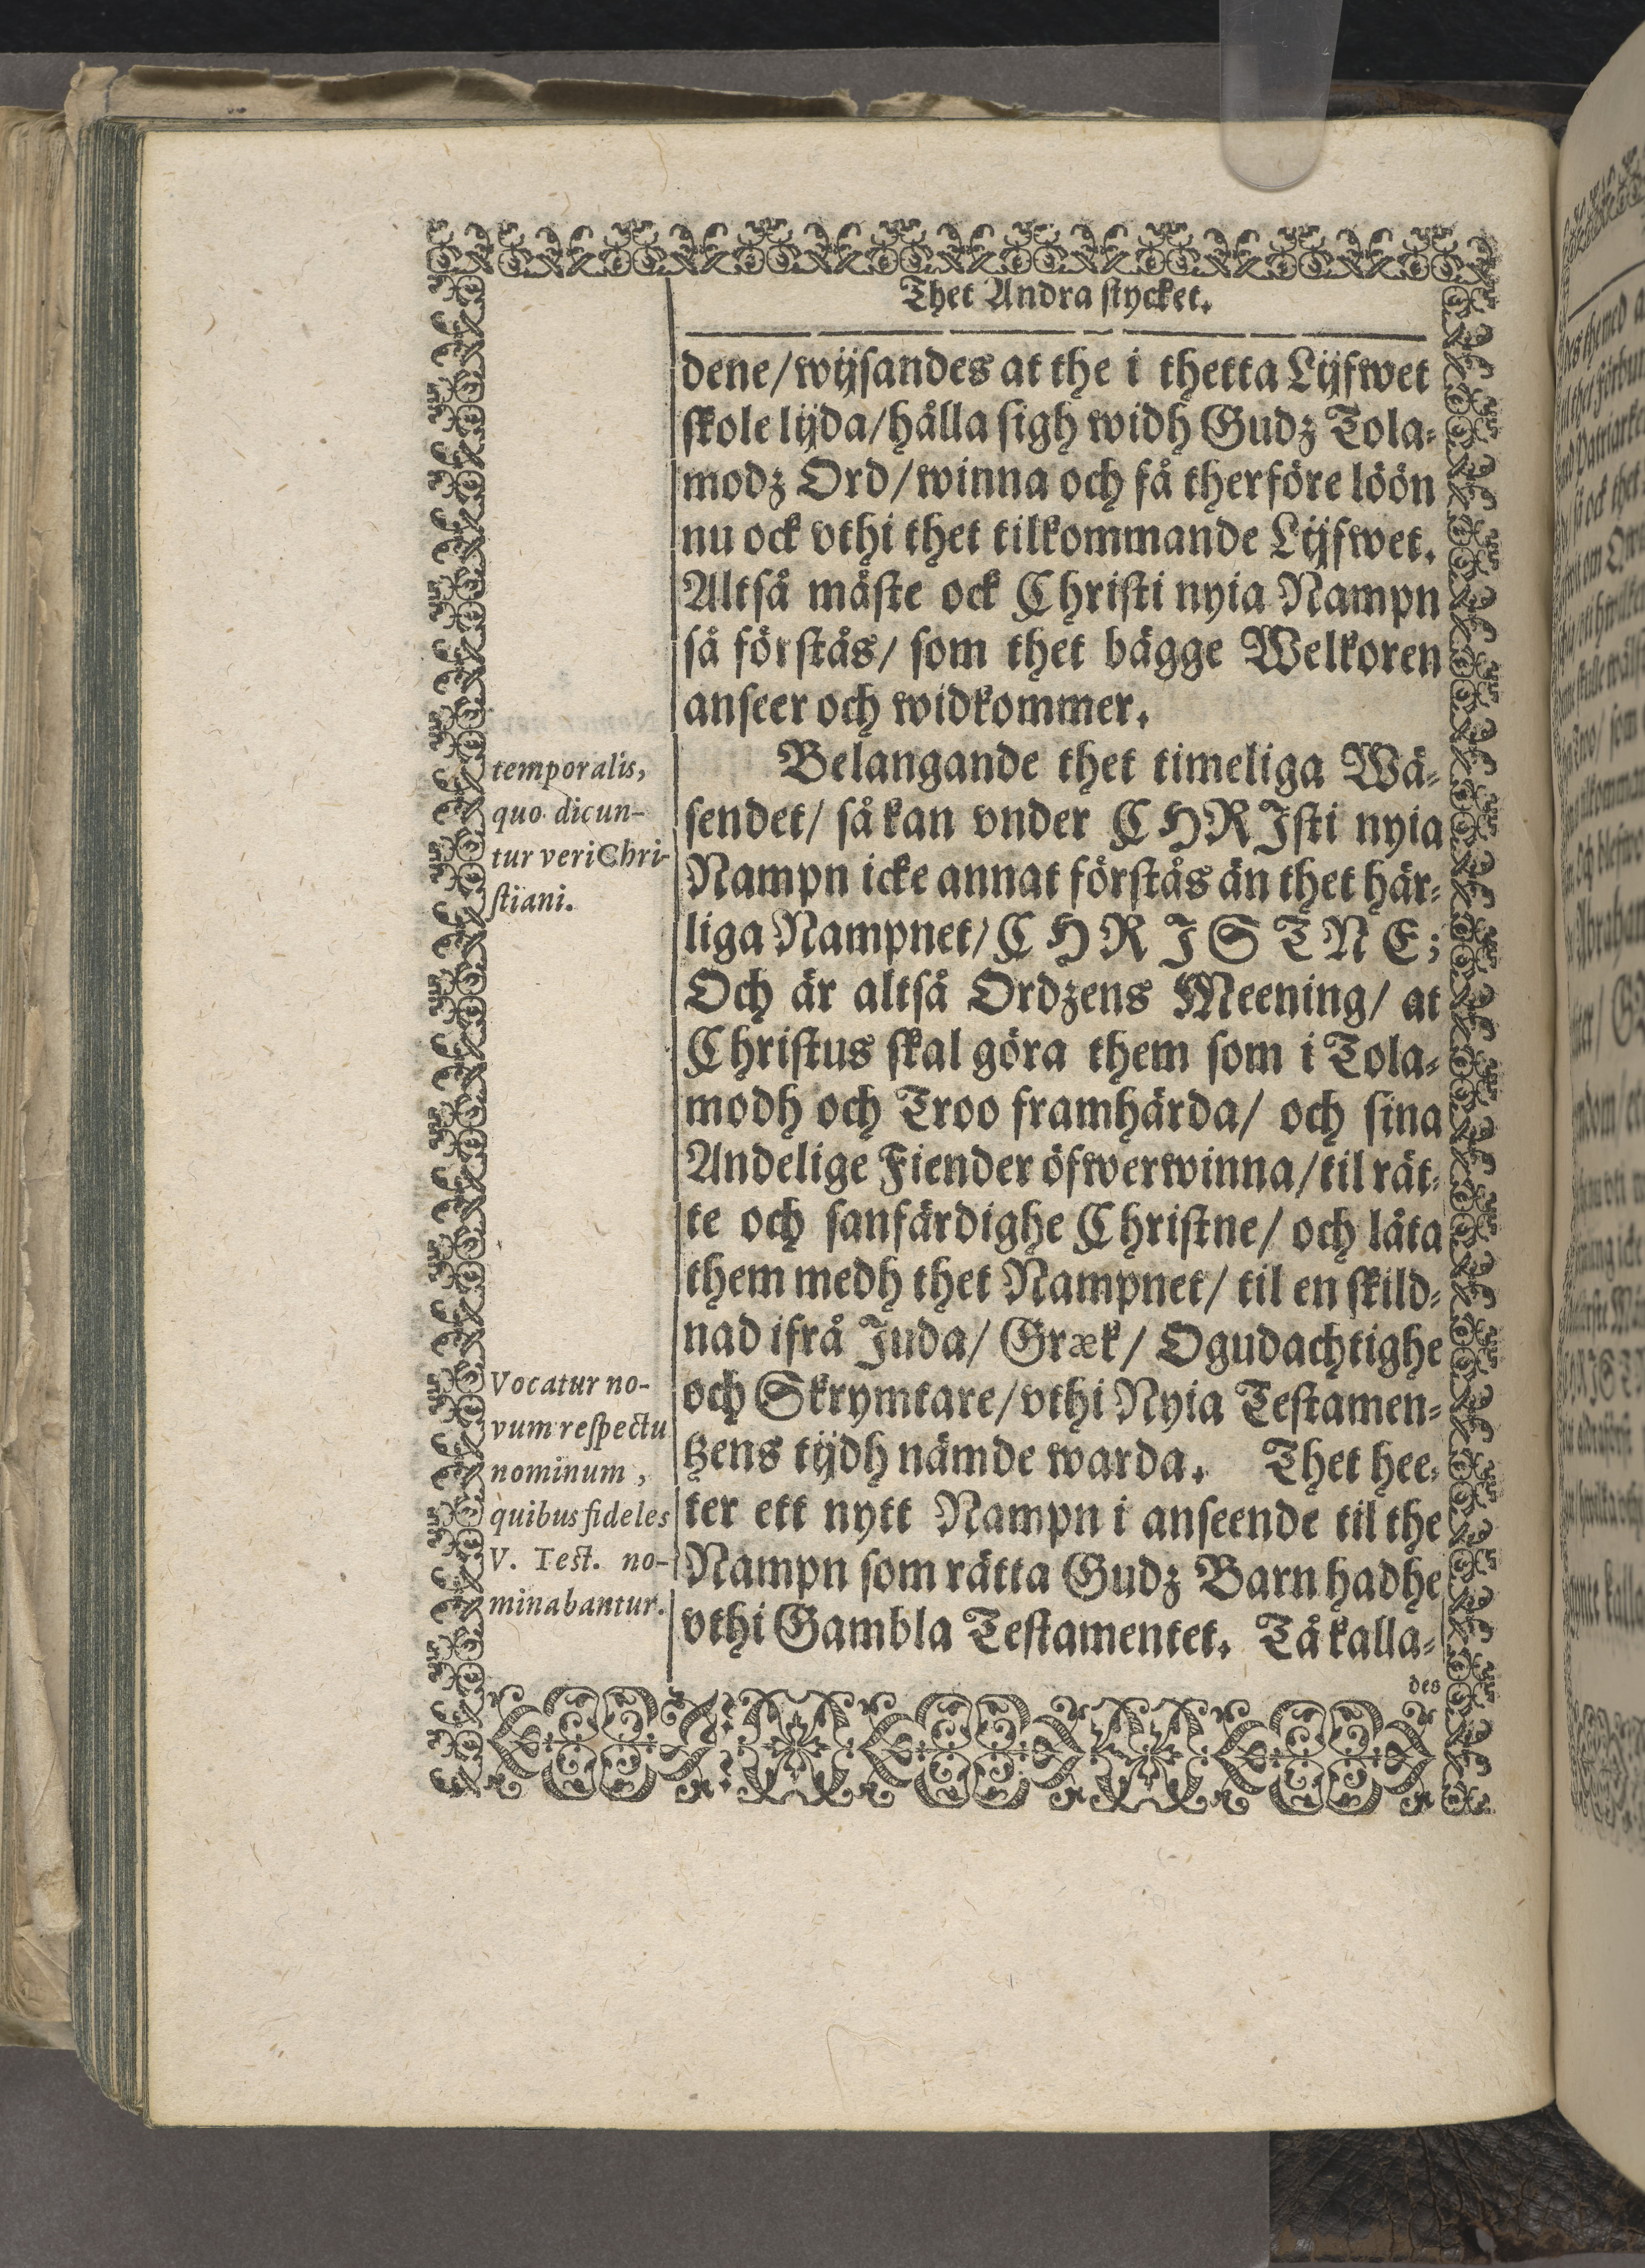 Thet Andra stycket.
dene/wijsandes at the i thetta Lijfwet
skole lijda/hålla sigh widh Gudz Tola-
modz Ord/winna och få therföre löön
nu ock vthi thet tilkommande Lijfwet.
Altså måste ock Christi nyia Nampn
så förstås/ som thet bägge Welkoren
anseer och widkommer.
temporalis,
quo dicun-
tur veri Chri-
stiani.
Belangande thet timeliga Wä-
sendet/ så kan vnder CHRIsti nyia
Nampn icke annat förstås än thet här-
liga Nampnet/CHRISTNE;
Och är altså Ordzens Meening/ at
Christus skal göra them som i Tola-
modh och Troo framhärda/ och sina
Andelige Fiender öfwerwinna/til rät-
te och sanfärdighe Christne/ och låta
them medh thet Nampnet/ til en skild-
nad ifrå Juda/ Græk/ Ogudachtighe
Vocatur no-
vum respectu
nominum,
quibus fideles
V. Test. no-
minabantur.
och Skrymtare/vthi Nyia Testamen-
tzens tijdh nämde warda. Thet hee-
ter ett nytt Nampn i anseende til the
Nampn som rätta Gudz Barn hadhe
vthi Gambla Testamentet. Tå kalla-
des